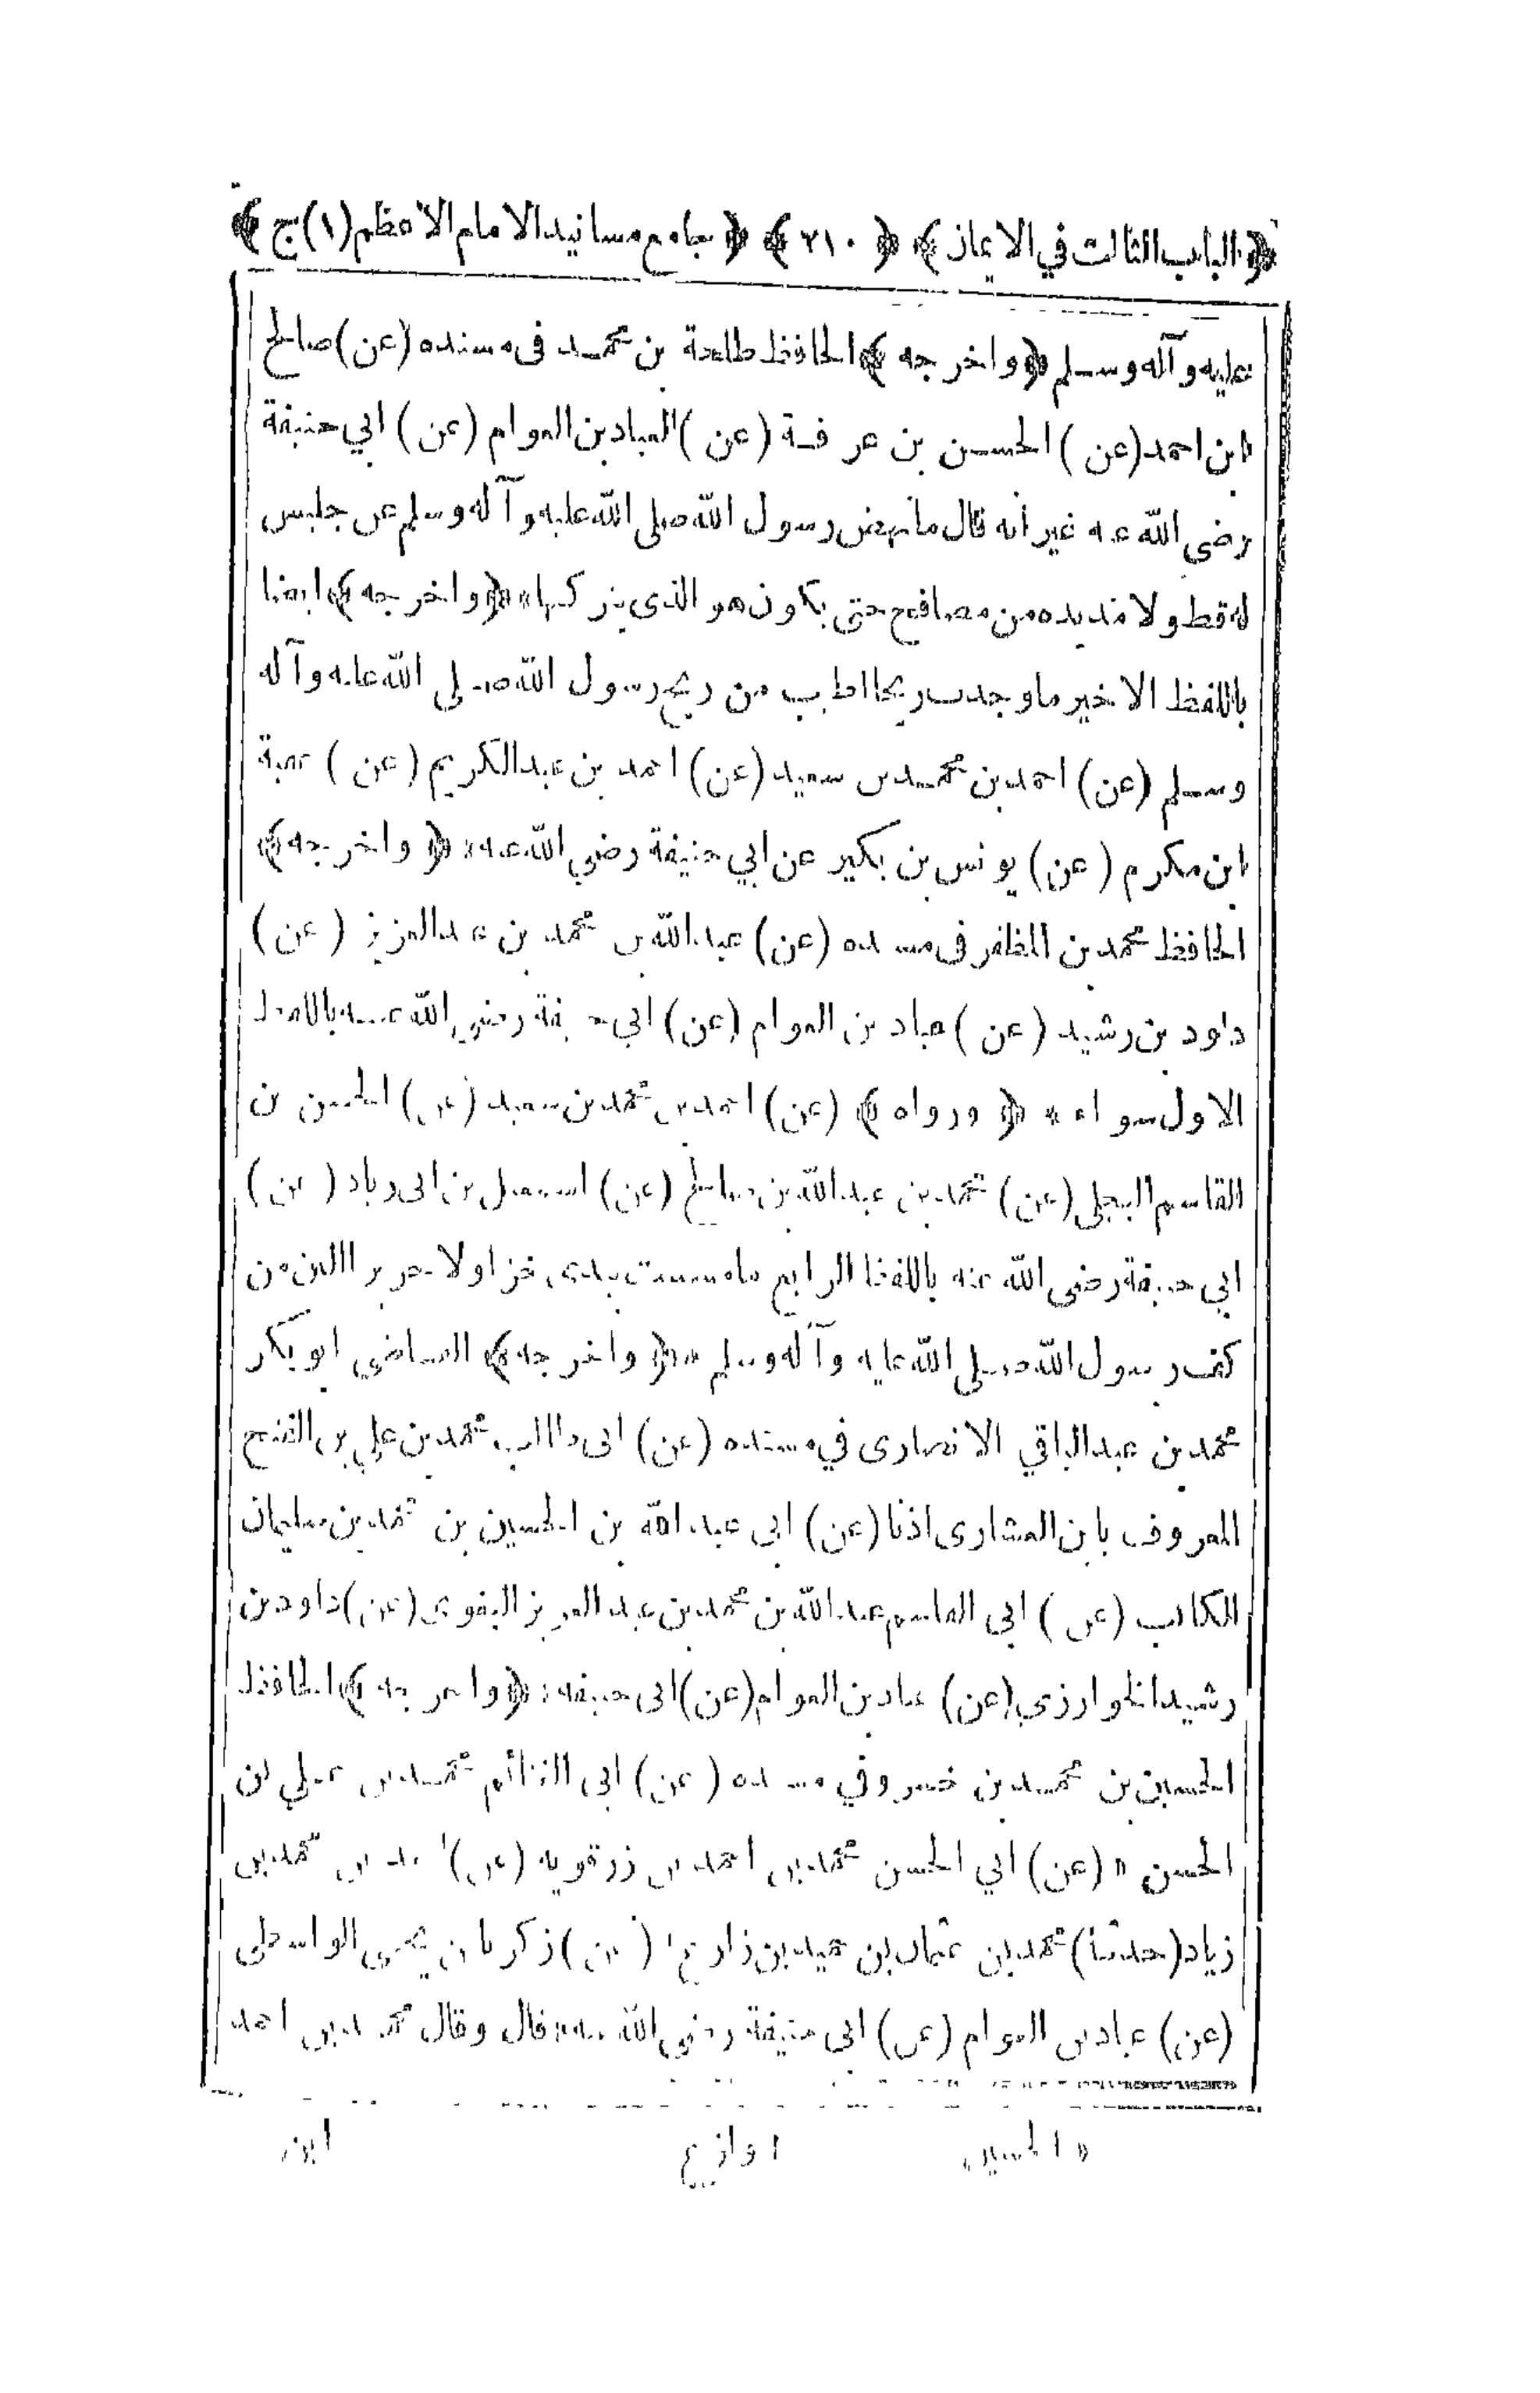 ﴿الباب الثالث في الايمان﴾ ﴿٢١٠﴾ ﴿جامع مسانيد الامام الاعظم (١) ج﴾
عليه وآله وسلم ﴿واخرجه﴾ الحافظ طلحة بن محمد فى مسنده (عن) صالح
ابن احمد (عن) الحسن بن عرفة (عن) العباد بن العوام (عن) ابي حنيفة
رضى الله عنه غير انه قال ما نهض رسول الله صلى الله عليه وآله وسلم عن جليس
له قط ولا مد يده من مصافح حتى يكون هو الذى يتركها * ﴿واخرجه﴾ ايضا
باللفظ الاخير ما وجدت ريحا اطيب من ريح رسول الله صلى الله عليه وآله
وسلم (عن) احمد بن محمد بن سعيد (عن) احمد بن عبد الكريم (عن) عقبة
ابن مكرم (عن) يونس بن بكير عن ابي حنيفة رضي الله عنه * ﴿واخرجه﴾
الحافظ محمد بن المظفر فى مسنده (عن) عبد الله بن محمد بن عبد العزيز (عن)
داود بن رشيد (عن) عباد بن العوام (عن) ابي حنيفة رضي الله عنه باللفظ
الاول سواء * ﴿ورواه﴾ (عن) احمد بن محمد بن سعيد (عن) الحسن بن
القاسم البجلى (عن) محمد بن عبد الله بن صالح (عن) اسمعيل بن ابى زياد (عن)
ابي حنيفة رضى الله عنه باللفظ الرابع ما مسست بيدى خزا ولا حريرا الين من
كف رسول الله صلى الله عليه وآله وسلم * ﴿واخرجه﴾ القاضي ابو بكر
محمد بن عبد الباقي الانصارى في مسنده (عن) ابى طالب محمد بن علي بن الفتح
المعروف بابن العشارى اذنا (عن) ابى عبد الله بن الحسين بن محمد بن سليمان
الكاتب (عن) ابى القاسم عبد الله بن محمد بن عبد العزيز البغوى (عن) داود بن
رشيد الخوارزمي (عن) عباد بن العوام (عن) ابى حنيفة * ﴿واخرجه﴾ الحافظ
الحسين بن محمد بن خسرو في مسنده (عن) ابى الغنائم محمد بن علي بن
الحسن * (عن) ابي الحسن محمد بن احمد بن زرقويه (عن) بن محمد بن
زياد (حدثنا) محمد بن عثمان بن عبيد بن (عن) زكريا بن يحيى الواسطى
(عن) عباد بن العوام (عن) ابى حنيفة رضي الله عنه * قال وقال محمد بن احمد
* الحسين
١ وازع
ابن